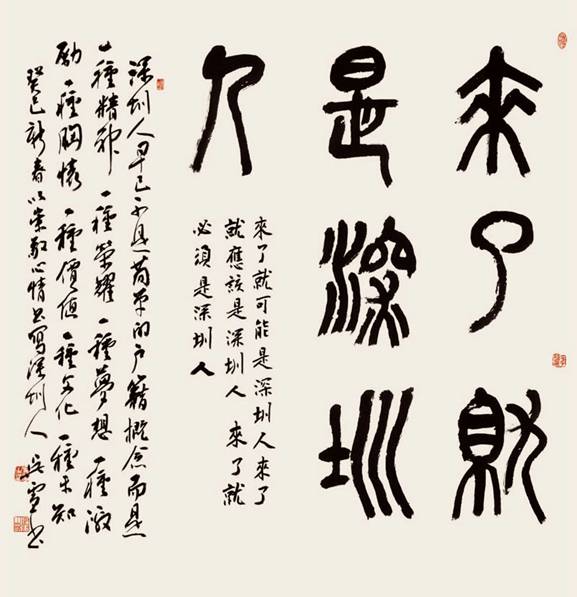 来了就
是深圳
人
來了就可能是深圳人來了
就應該是深圳人 來了就
必須是深圳人
深圳人早已不是简单的户籍概念而是
一種精神 一種榮耀 一種夢想 一種激
励 一種胸懷 一種價值 一種文化 一種未知
癸巳新春以崇敬心情书寫深圳人 吴雪书